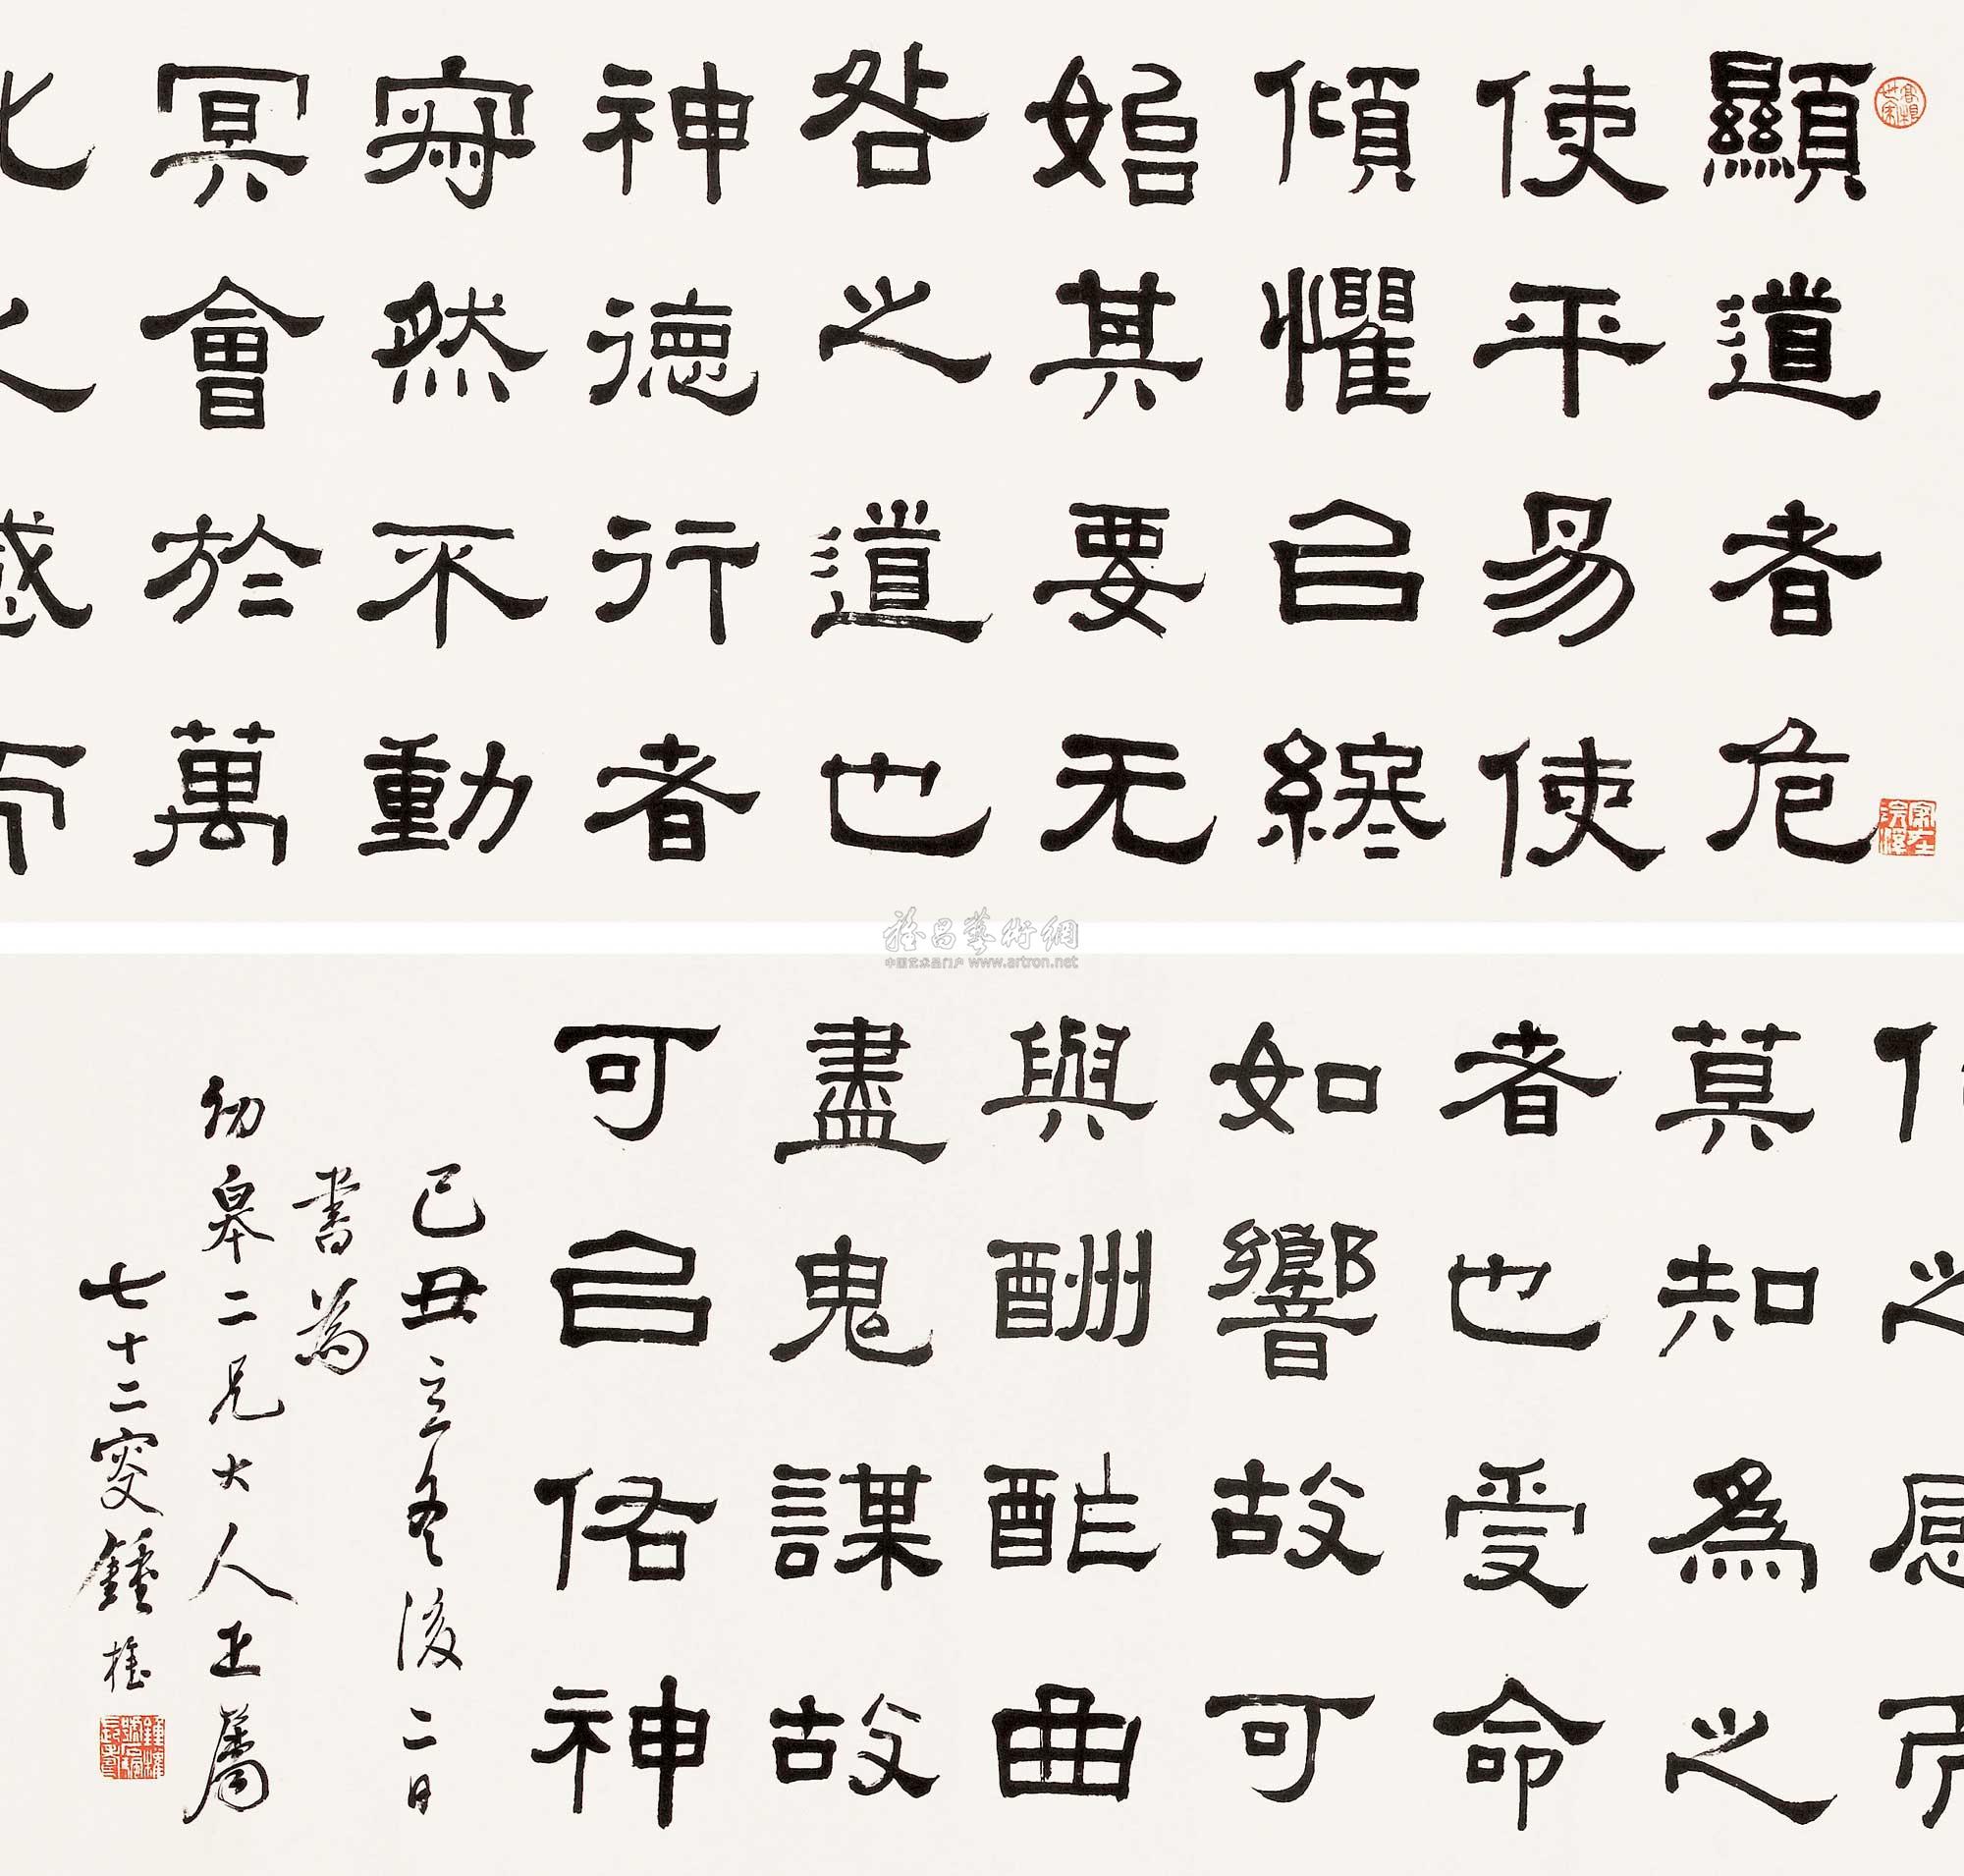 顯道者危
使平易使
傾懼㠯終
始其要无
咎之道也
神德行者
寂然不動
冥會於萬
化之感而
莫知為之
者也受命
如響故可
與酬酢曲
盡鬼謀故
可㠯佑神
己丑立冬後二日
書為
幼皋二兄大人正屬
七十二叟鍾
雅昌藝術網
中国艺术品门户 www.artron.net